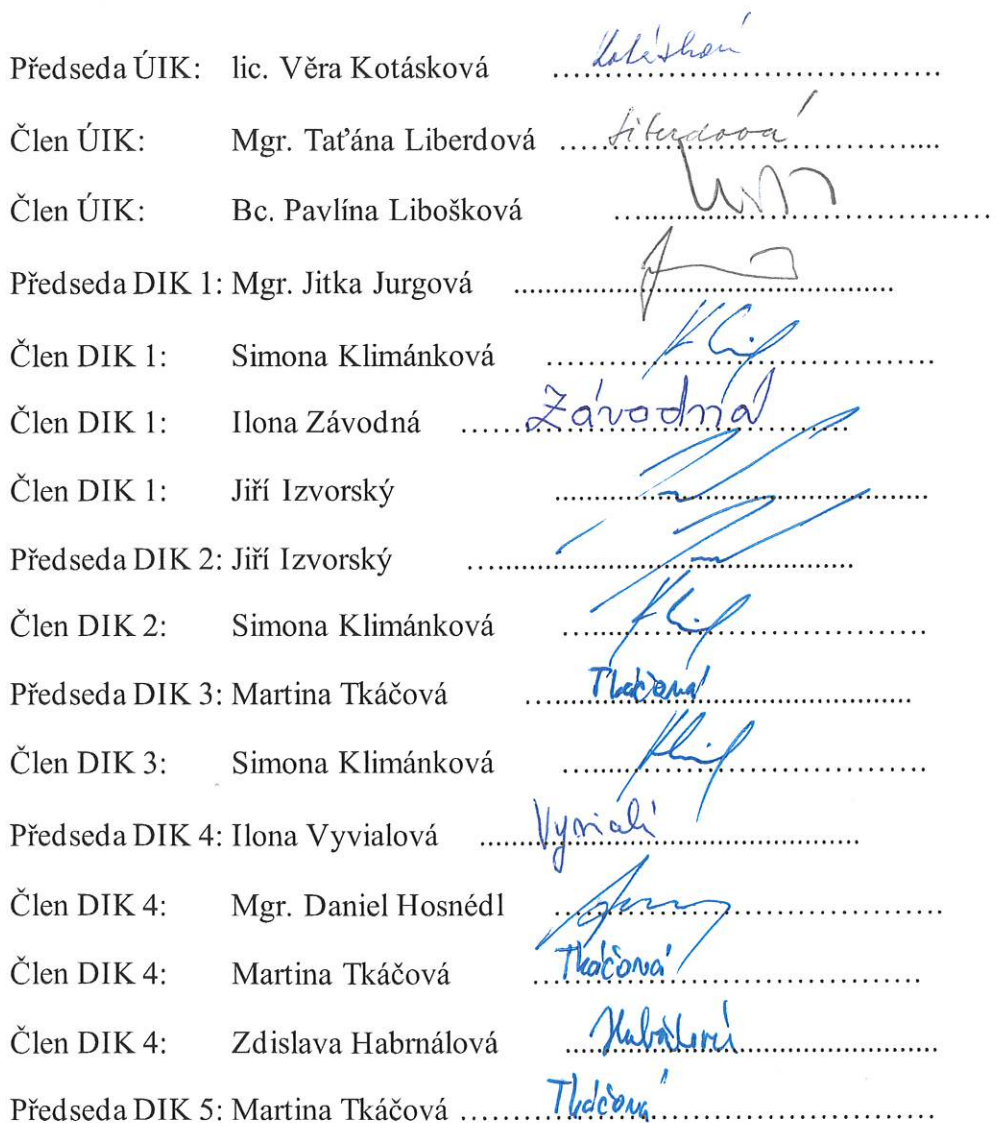 Předseda ÚIK: lic. Věra Kotásková ........................................
Člen ÚIK: Mgr. Taťána Liberdová ........................................ Liberdová
Člen ÚIK: Bc. Pavlína Libošková ........................................
Předseda DIK 1: Mgr. Jitka Jurgová ........................................
Člen DIK 1: Simona Klimánková ........................................
Člen DIK 1: Ilona Závodná ........................................ Závodná
Člen DIK 1: Jiří Izvorský ........................................
Předseda DIK 2: Jiří Izvorský ........................................
Člen DIK 2: Simona Klimánková ........................................
Předseda DIK 3: Martina Tkáčová ........................................ Tkáčová
Člen DIK 3: Simona Klimánková ........................................
Předseda DIK 4: Ilona Vyvialová ........................................
Člen DIK 4: Mgr. Daniel Hosnédl ........................................
Člen DIK 4: Martina Tkáčová ........................................ Tkáčová
Člen DIK 4: Zdislava Habrnálová ........................................
Předseda DIK 5: Martina Tkáčová ........................................ Tkáčová